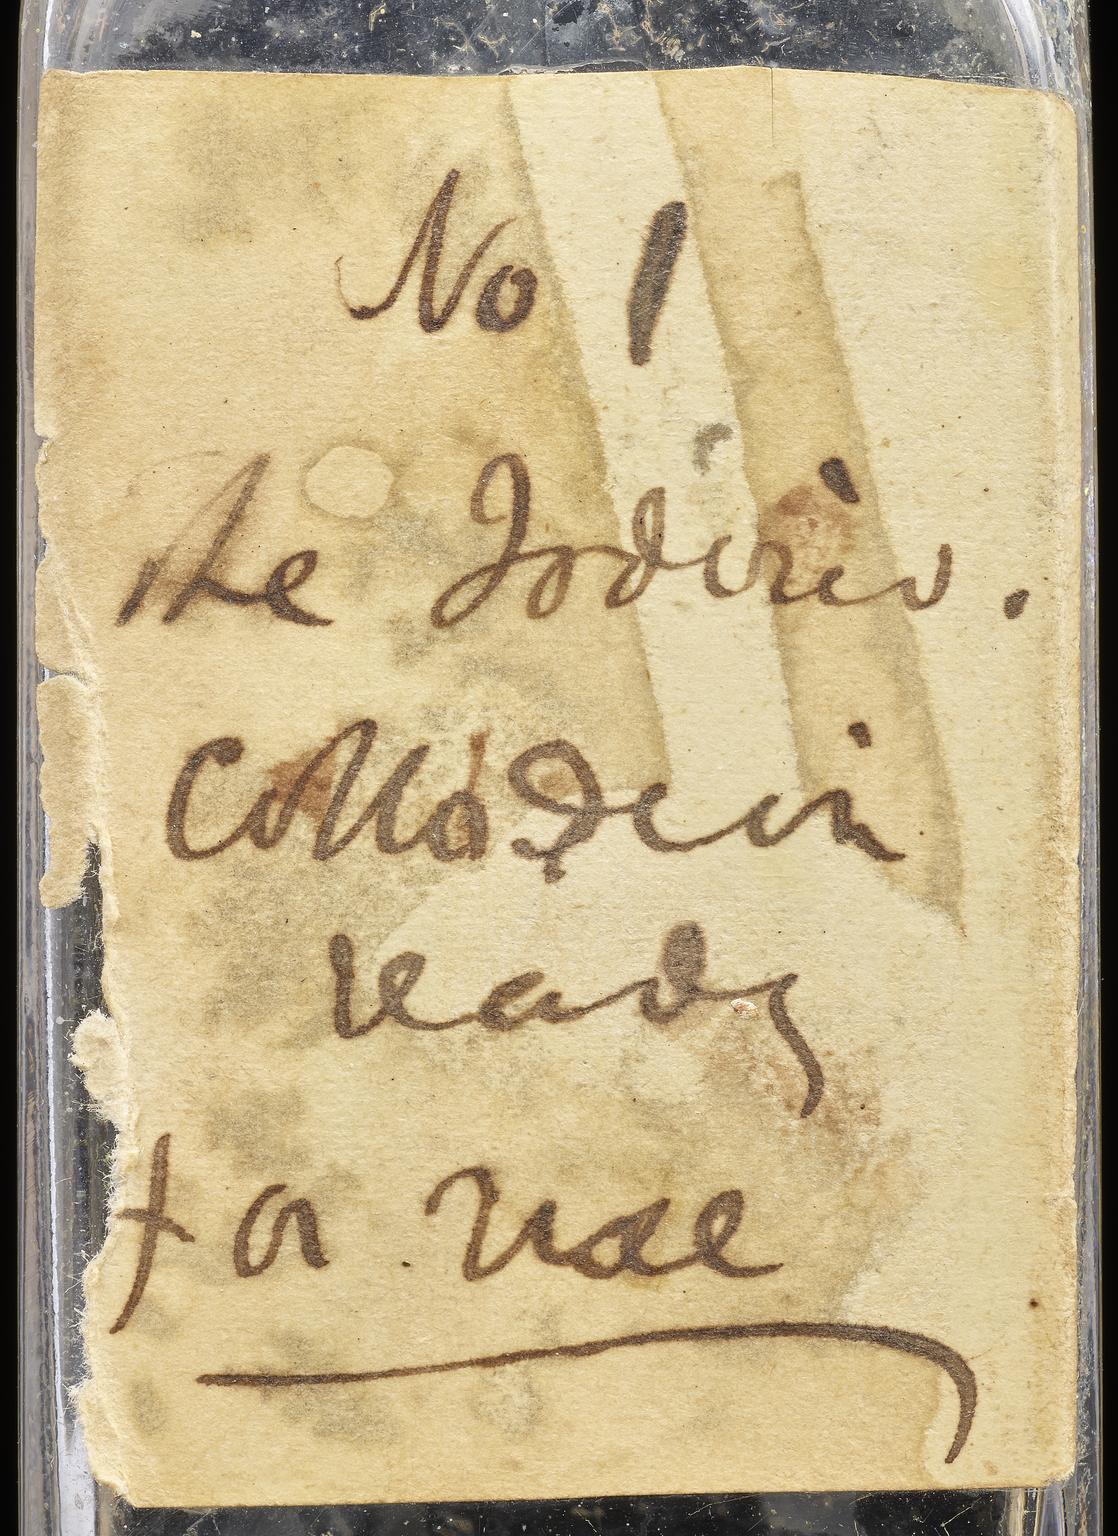 No 1
the Iodiris.
Collodion
ready
for use